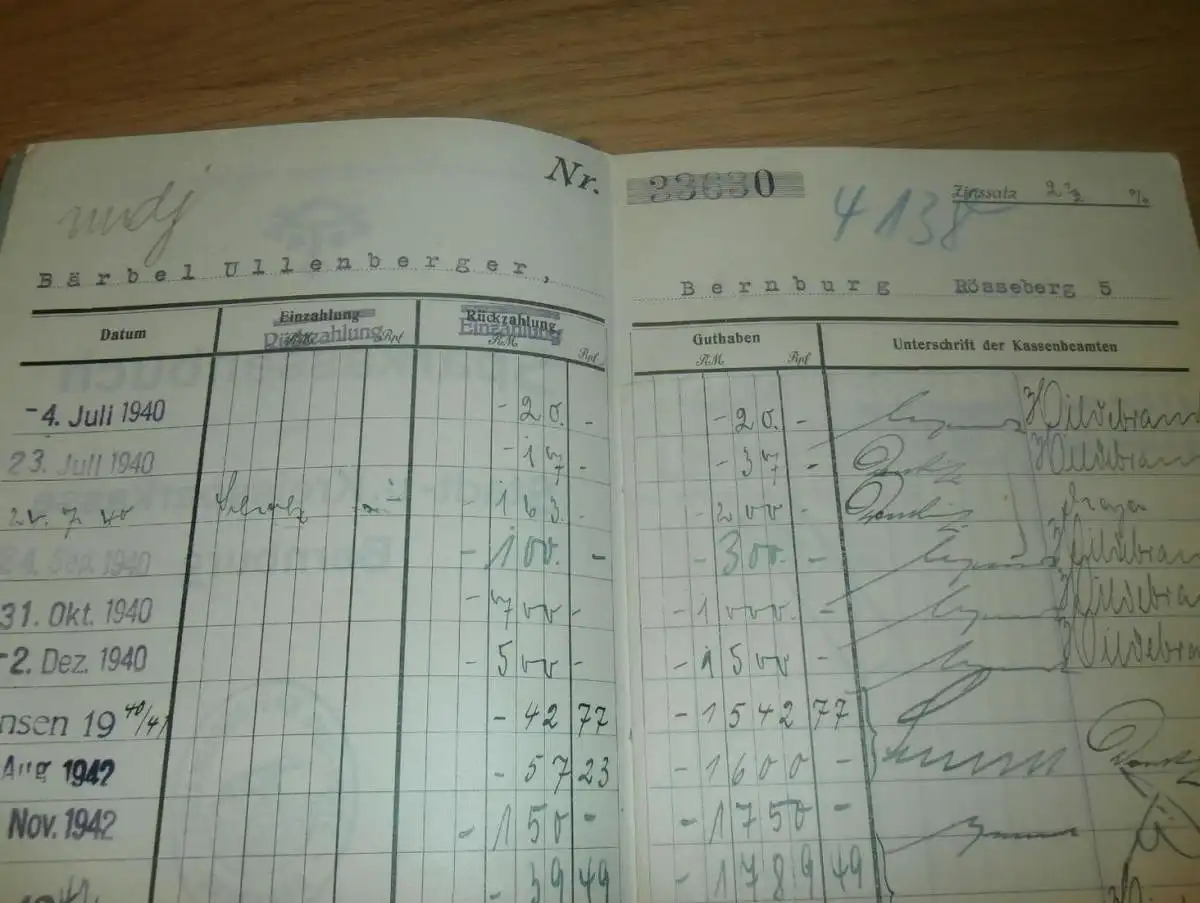 mdj
Nr. 23630
4138
Zinssatz 2 1/2 %
Bärbel Ullenberger, Bernburg Rösseberg 5
Datum Einzahlung Rückzahlung Guthaben Unterschrift der Kassenbeamten
Rückzahlung Einzahlung
RM Rpf RM Rpf RM Rpf
-4. Juli 1940 -20.- -20.- Hildebran
23. Juli 1940 -17- -37- Hildebran
-163.- -200-
24. Sep. 1940 -100.- -300- Hildebran
31. Okt. 1940 -700- -1000.- Hildebran
-2. Dez. 1940 -500- -1500- Hildebran
nsen 19 40/41 -42 77 -1542 77
Aug 1942 -57 23 -1600-
Nov. 1942 -150- -1750-
-39 49 -1789 49